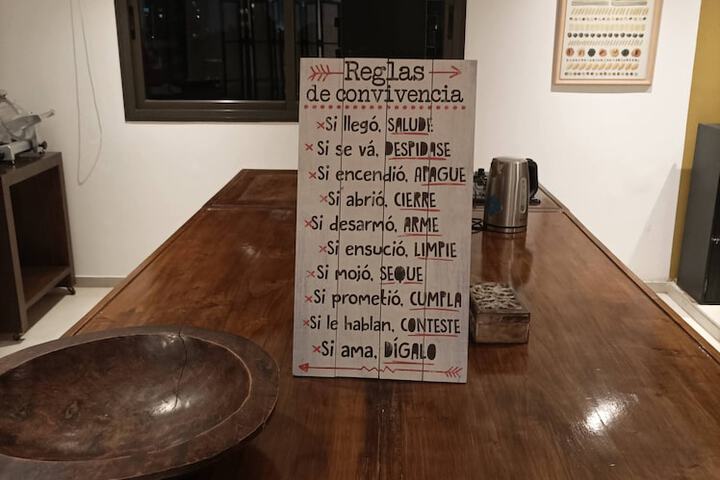 Reglas
de convivencia
×Si llegó, SALUDE
×Si se vá, DESPIDASE
×Si encendió, APAGUE
×Si abrió, CIERRE
×Si desarmó, ARME
×Si ensució, LIMPIE
×Si mojó, SEQUE
×Si prometió, CUMPLA
×Si le hablan, CONTESTE
×Si ama, DÍGALO